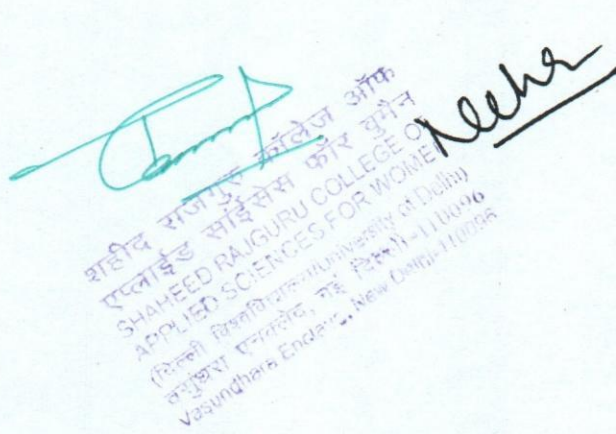 Neeha
शहीद राजगुरु कॉलेज ऑफ
एप्लाईड साईंसेस फॉर वुमैन
SHAHEED RAJGURU COLLEGE OF
APPLIED SCIENCES FOR WOMEN
(दिल्ली विश्वविद्यालय/University of Delhi)
वसुंधरा एनक्लेव, नई दिल्ली-110096
Vasundhara Enclave, New Delhi-110096